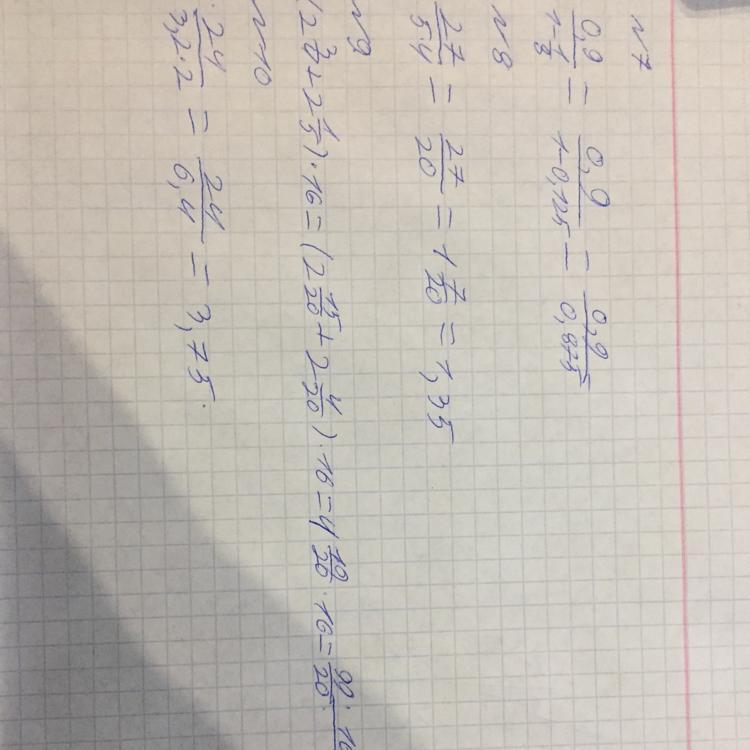 №7
0,9/(1-1/8) = 0,9/(1-0,125) = 0,9/0,875
№8
27/(5·4) = 27/20 = 1 7/20 = 1,35
№9
(2 3/4 + 2 1/5)·16 = (2 15/20 + 2 4/20)·16 = 4 19/20 · 16 = 99·16/20
№10
24/(3,2·2) = 24/6,4 = 3,75.